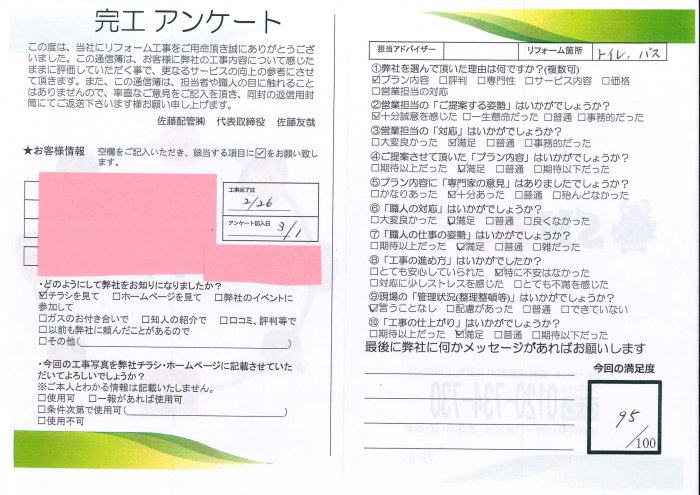 完工 アンケート
この度は、当社にリフォーム工事をご用命頂き誠にありがとうござ
いました。この通信簿は、お客様に弊社の工事内容について感じた
ままに評価していただく事で、更なるサービスの向上の参考にさせ
て頂きます。また、この通信簿は、担当者や職人の目に触れること
はありませんので、率直なご意見をご記入を頂き、同封の返信用封
筒にてご返送下さいます様お願い申し上げます。
佐藤配管㈱ 代表取締役 佐藤友哉
★お客様情報 空欄をご記入いただき、該当する項目に☑をお願い致し
ます。
工事完了日
2/26
アンケート記入日
3/1
・どのようにして弊社をお知りになりましたか?
☑チラシを見て □ホームページを見て □弊社のイベントに
参加して
□ガスのお付き合いで □知人の紹介で □口コミ、評判等で
□以前も弊社に頼んだことがあるので
□その他( )
・今回の工事写真を弊社チラシ・ホームページに記載させていた
だいてよろしいでしょうか?
※ご本人とわかる情報は記載いたしません。
□使用可 □一報があれば使用可
□条件次第で使用可( )
□使用不可
担当アドバイザー
リフォーム箇所
トイレ、バス
①弊社を選んで頂いた理由は何ですか?(複数可)
☑プラン内容 □評判 □専門性 □サービス内容 □価格
□営業担当の対応
②営業担当の「ご提案する姿勢」はいかがでしょうか?
☑十分誠意を感じた □一生懸命だった □普通 □事務的だった
③営業担当の「対応」はいかがでしょうか?
□大変良かった ☑満足 □普通 □事務的だった
④ご提案させて頂いた「プラン内容」はいかがでしょうか?
□期待以上だった ☑満足 □普通 □期待以下だった
⑤プラン内容に「専門家の意見」はありましたでしょうか?
□かなりあった ☑十分あった □普通 □殆んどなかった
⑥「職人の対応」はいかがでしょうか?
□大変良かった ☑満足 □普通 □良くなかった
⑦「職人の仕事の姿勢」はいかがでしょうか?
□期待以上だった ☑満足 □普通 □雑だった
⑧「工事の進め方」はいかがでしたか?
□とても安心していられた ☑特に不安はなかった
□対応に少しストレスを感じた □とても不満を感じた
⑨現場の「管理状況(整理整頓等)」はいかがでしょうか?
☑言うことなし □配慮があった □普通 □できていない
⑩「工事の仕上がり」はいかがでしょうか?
□期待以上だった ☑満足 □普通 □期待以下だった
最後に弊社に何かメッセージがあればお願いします
今回の満足度
95
/100